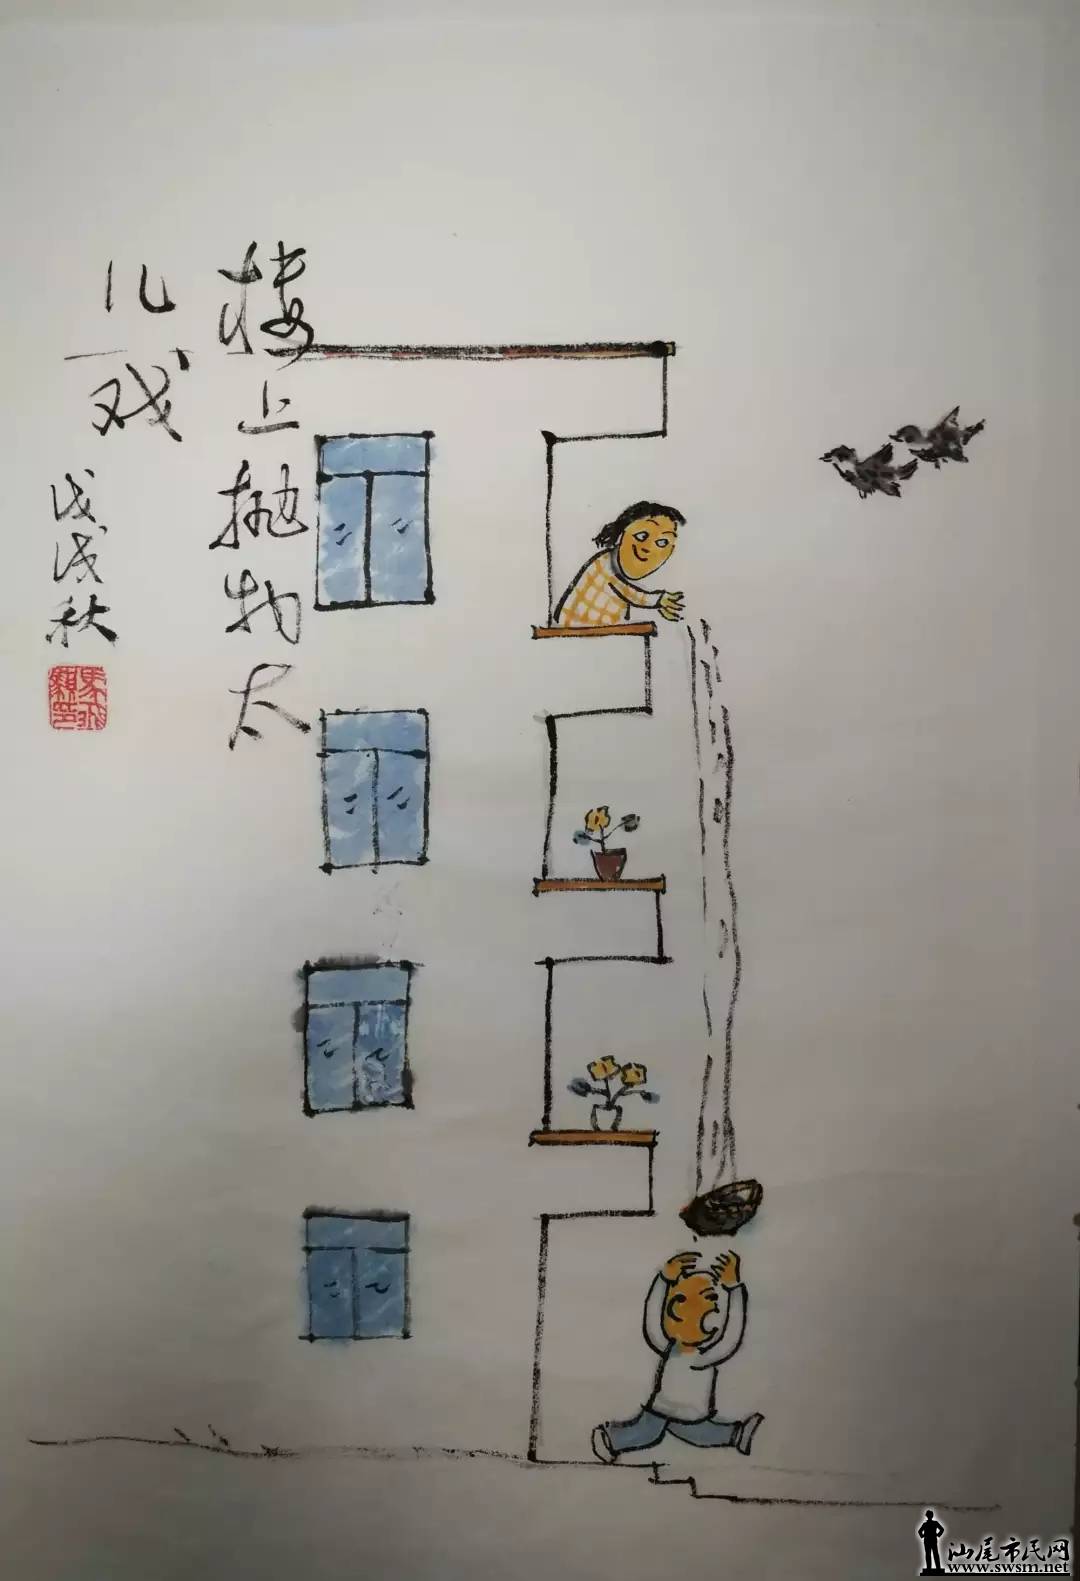 楼上抛物太
儿戏
戊戌秋
汕尾市民网
www.swsm.net